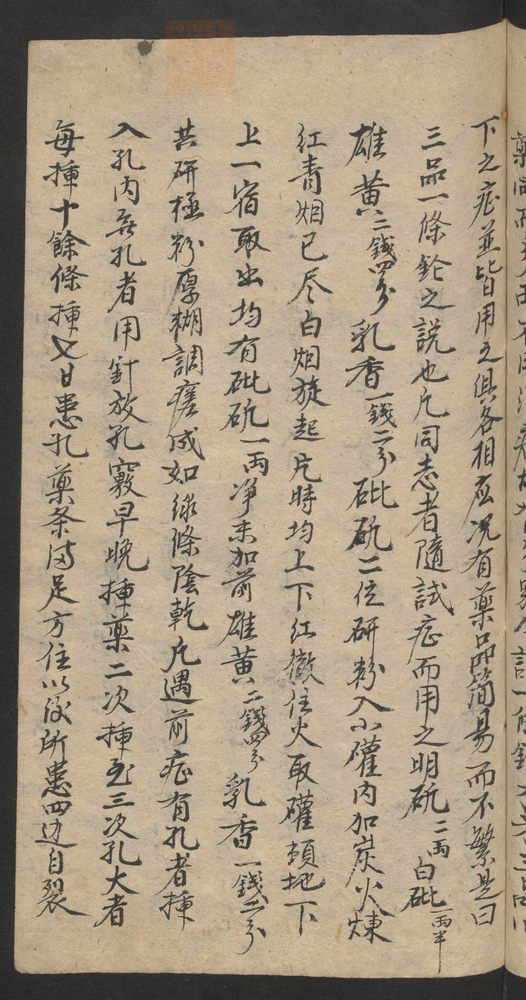 下之症並皆用之俱各相应况有藥品簡易而不繁是曰
三品一條鎗之說也凡同志者隨試症而用之明矾二両白砒一両半
雄黄二錢四分乳香一錢二分砒矾二位研粉入小礶内加炭火煉
红青烟已尽白烟旋起片時均上下红徹住火取礶頓地下
上一宿取出均有砒矾一両净末加前雄黄二錢四分乳香一錢二分
共研極粉厚糊調搓成如線條陰乾凡遇前症有孔者揷
入孔内无孔者用針放孔竅早晚揷藥二次揷至三次孔大者
每揷十餘條揷七日患孔藥条满足方住以後所患四边自裂